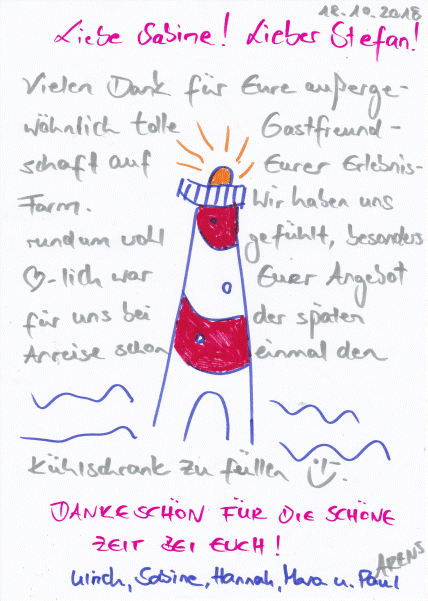 12.10.2018
Liebe Sabine! Lieber Stefan!
Vielen Dank für Eure außerge-
wöhnlich tolle Gastfreund-
schaft auf Eurer Erlebnis-
Farm. Wir haben uns
rundum wohl gefühlt, besonders
♡-lich war Euer Angebot
für uns bei der späten
Anreise schon einmal den
Kühlschrank zu füllen
DANKESCHÖN FÜR DIE SCHÖNE
ZEIT BEI EUCH!
ARENS
Ulrich, Sabine, Hannah, Mara u. Paul